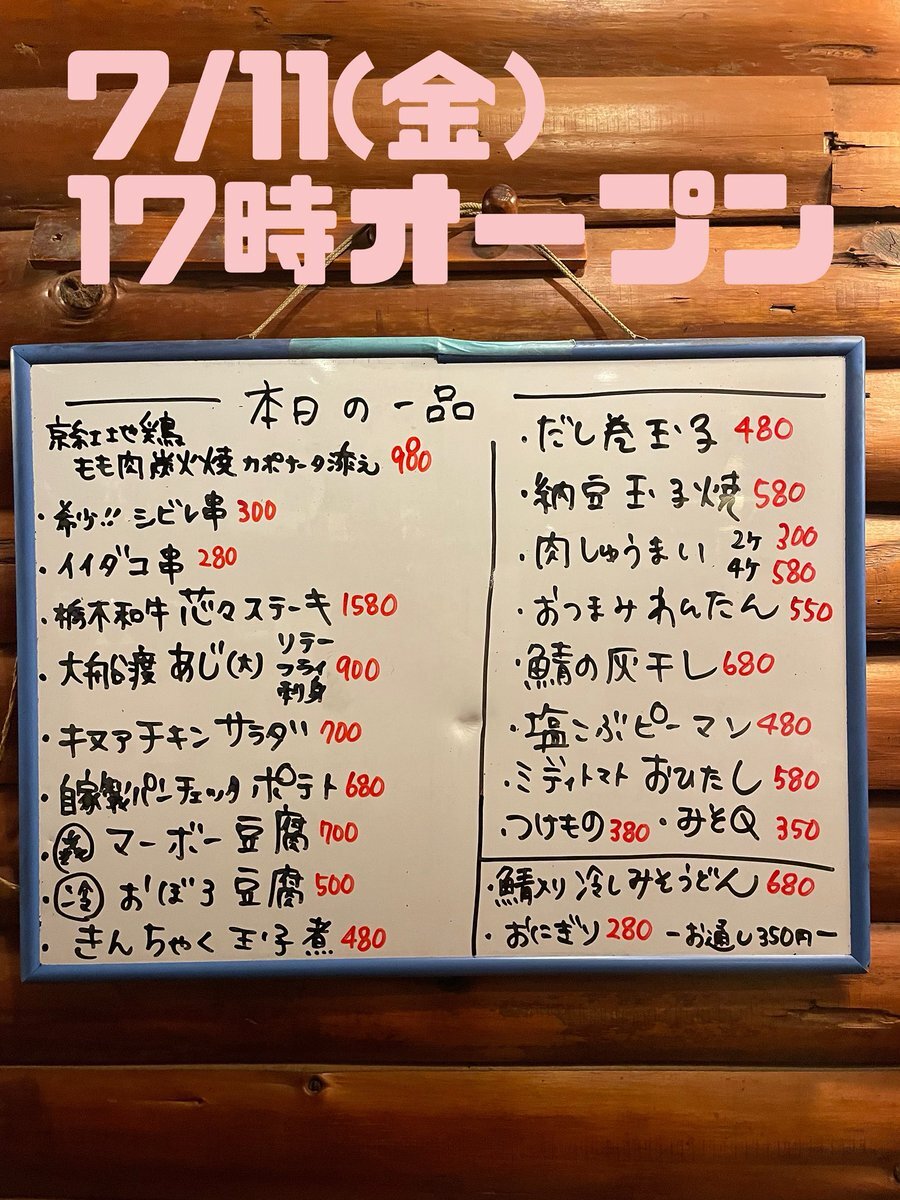 7/11(金)
17時オープン
本日の一品
京紅地鶏
もも肉炭火焼 カポナータ添え 980
・希少!! シビレ串 300
・イイダコ串 280
・栃木和牛 芯々ステーキ 1580
・大船渡 あじ(大) ソテー フライ 刺身 900
・キヌアチキンサラダ 700
・自家製パンチェッタポテト 680
・マーボー豆腐 700
・冷 おぼろ豆腐 500
・きんちゃく玉子煮 480
・だし巻玉子 480
・納豆玉子焼 580
・肉しゅうまい 2ケ 300
4ケ 580
・おつまみわんたん 550
・鯖の灰干し 680
・塩こぶピーマン 480
・ミディトマトおひたし 580
・つけもの 380 ・みそQ 350
・鯖入り冷しみそうどん 680
・おにぎり 280 ーお通し350円ー